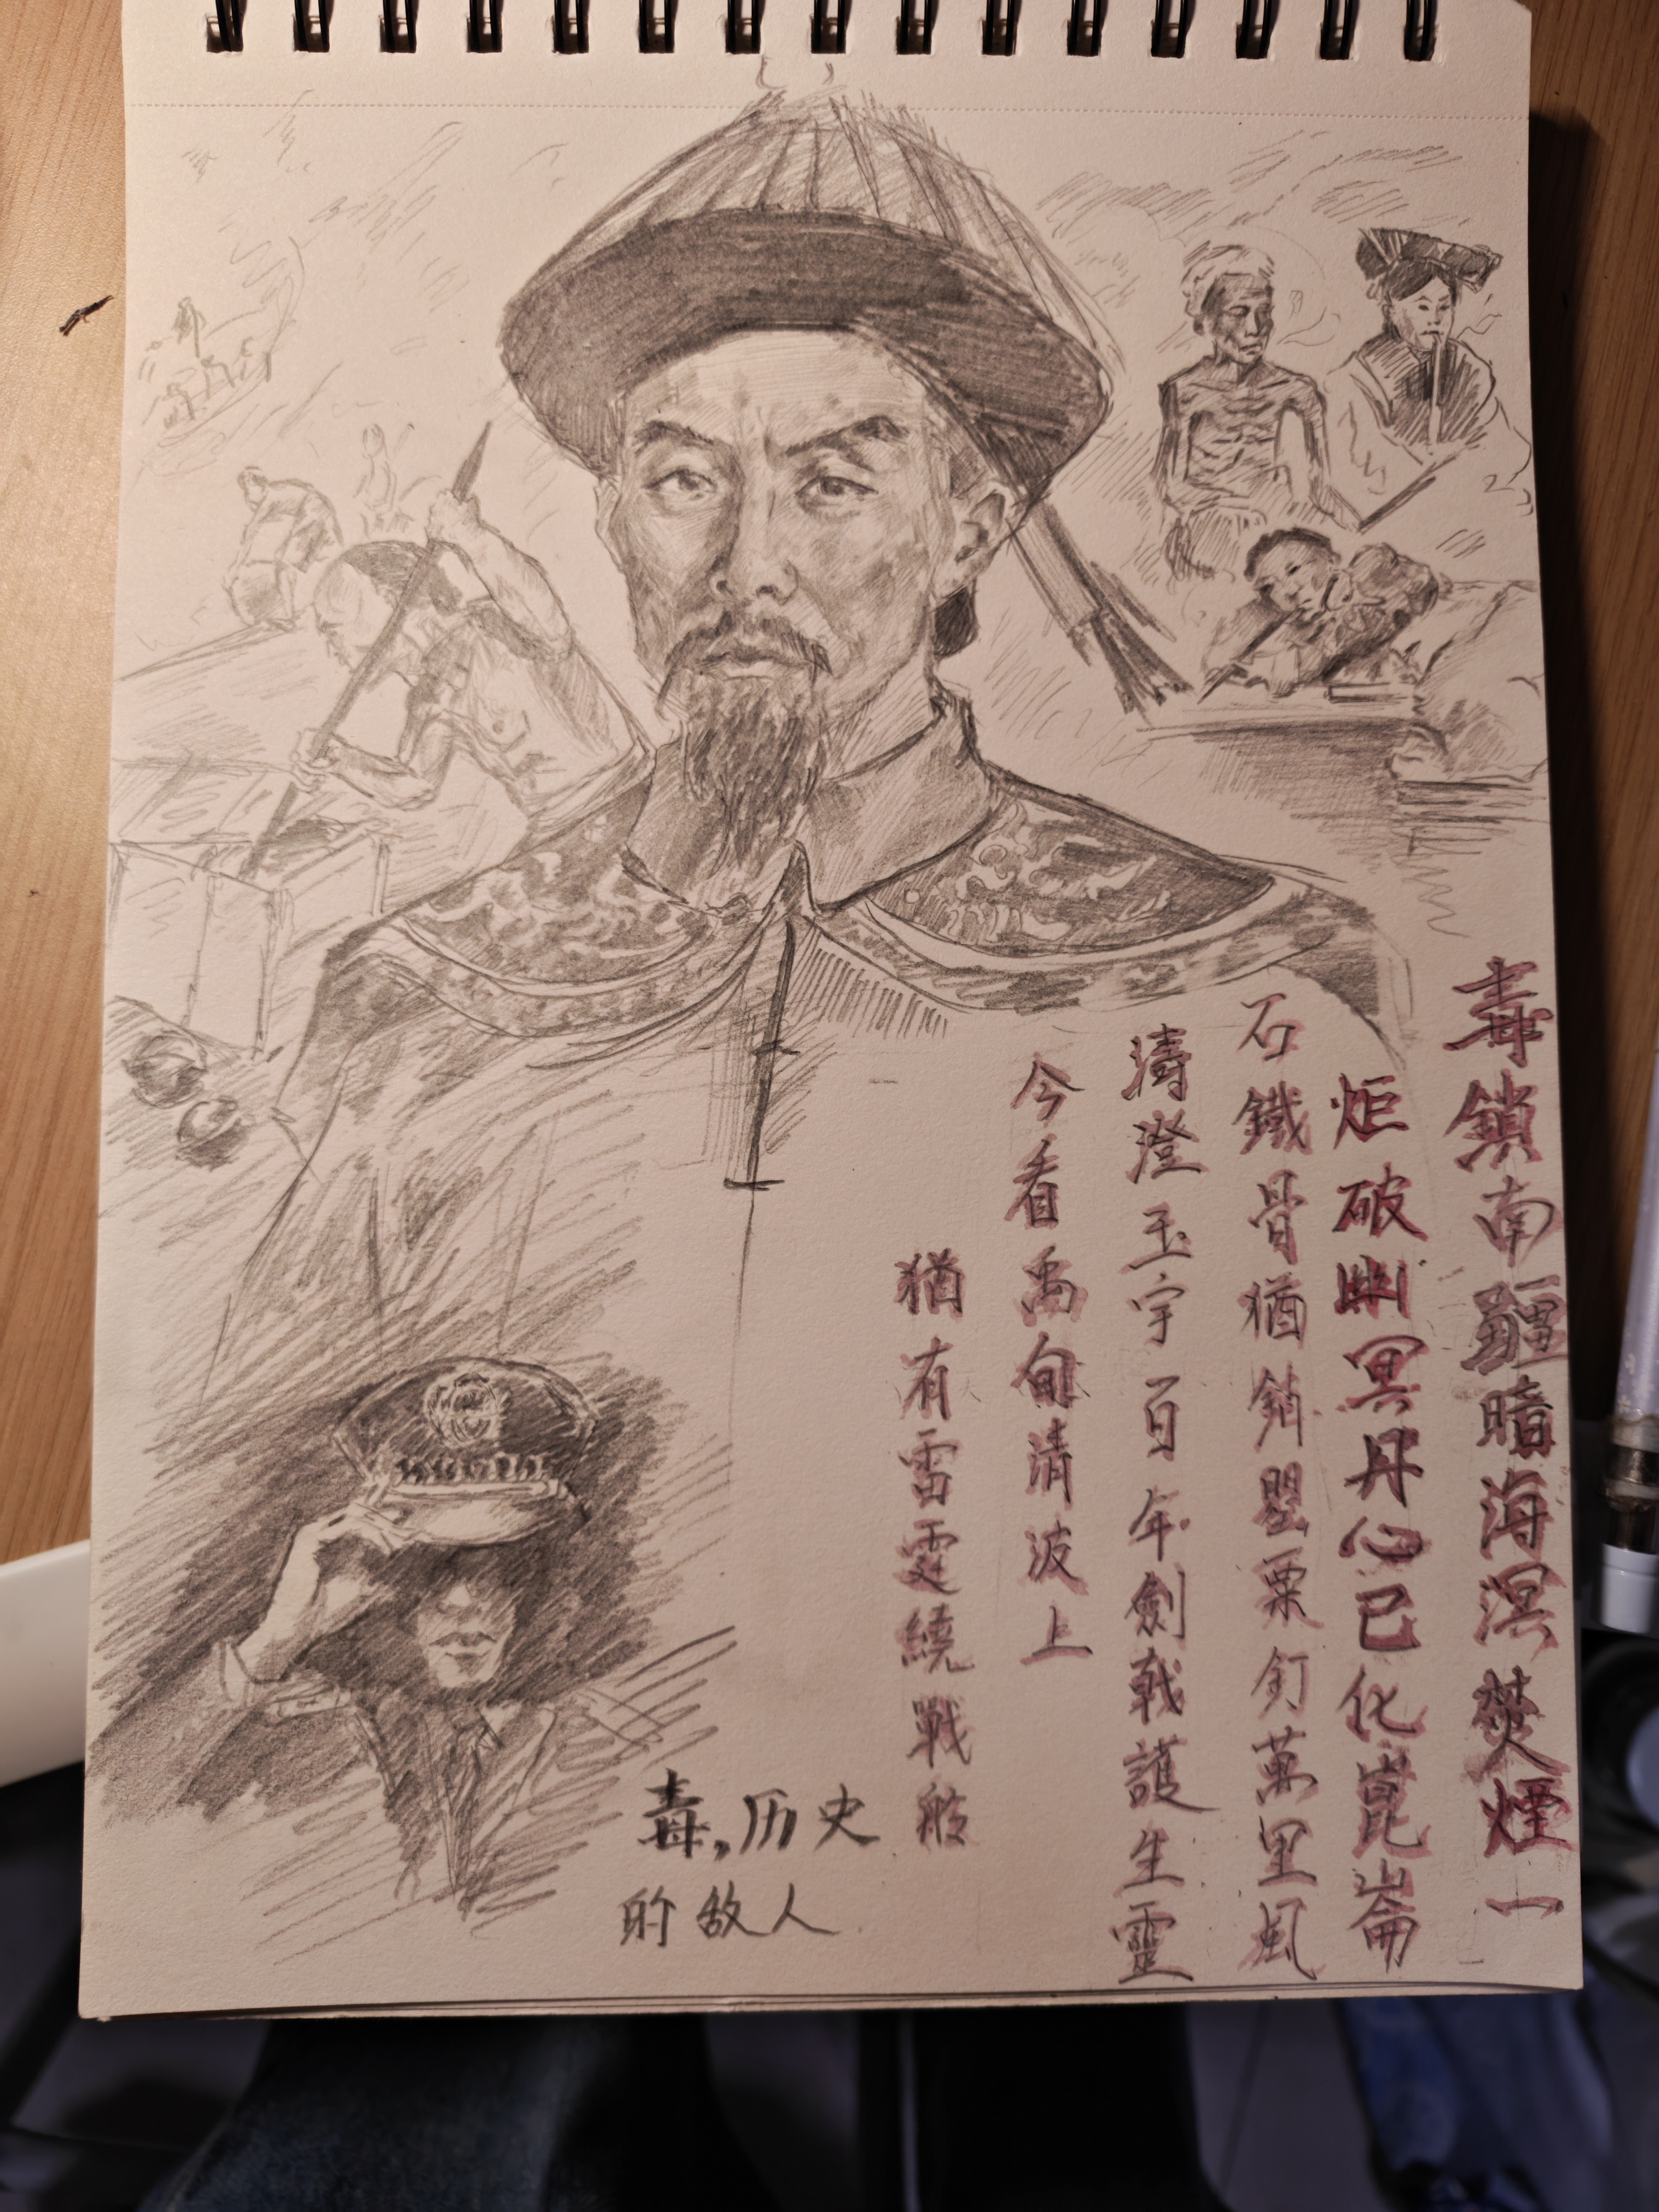 毒鎖南疆暗海溟焚煙一
炬破幽冥丹心已化崑崙
石鐵骨猶銷罌粟釘萬里風
濤澄玉宇百年劍戟護生靈
今看禹甸清波上
猶有雷霆繞戰舷
毒,历史
的敌人